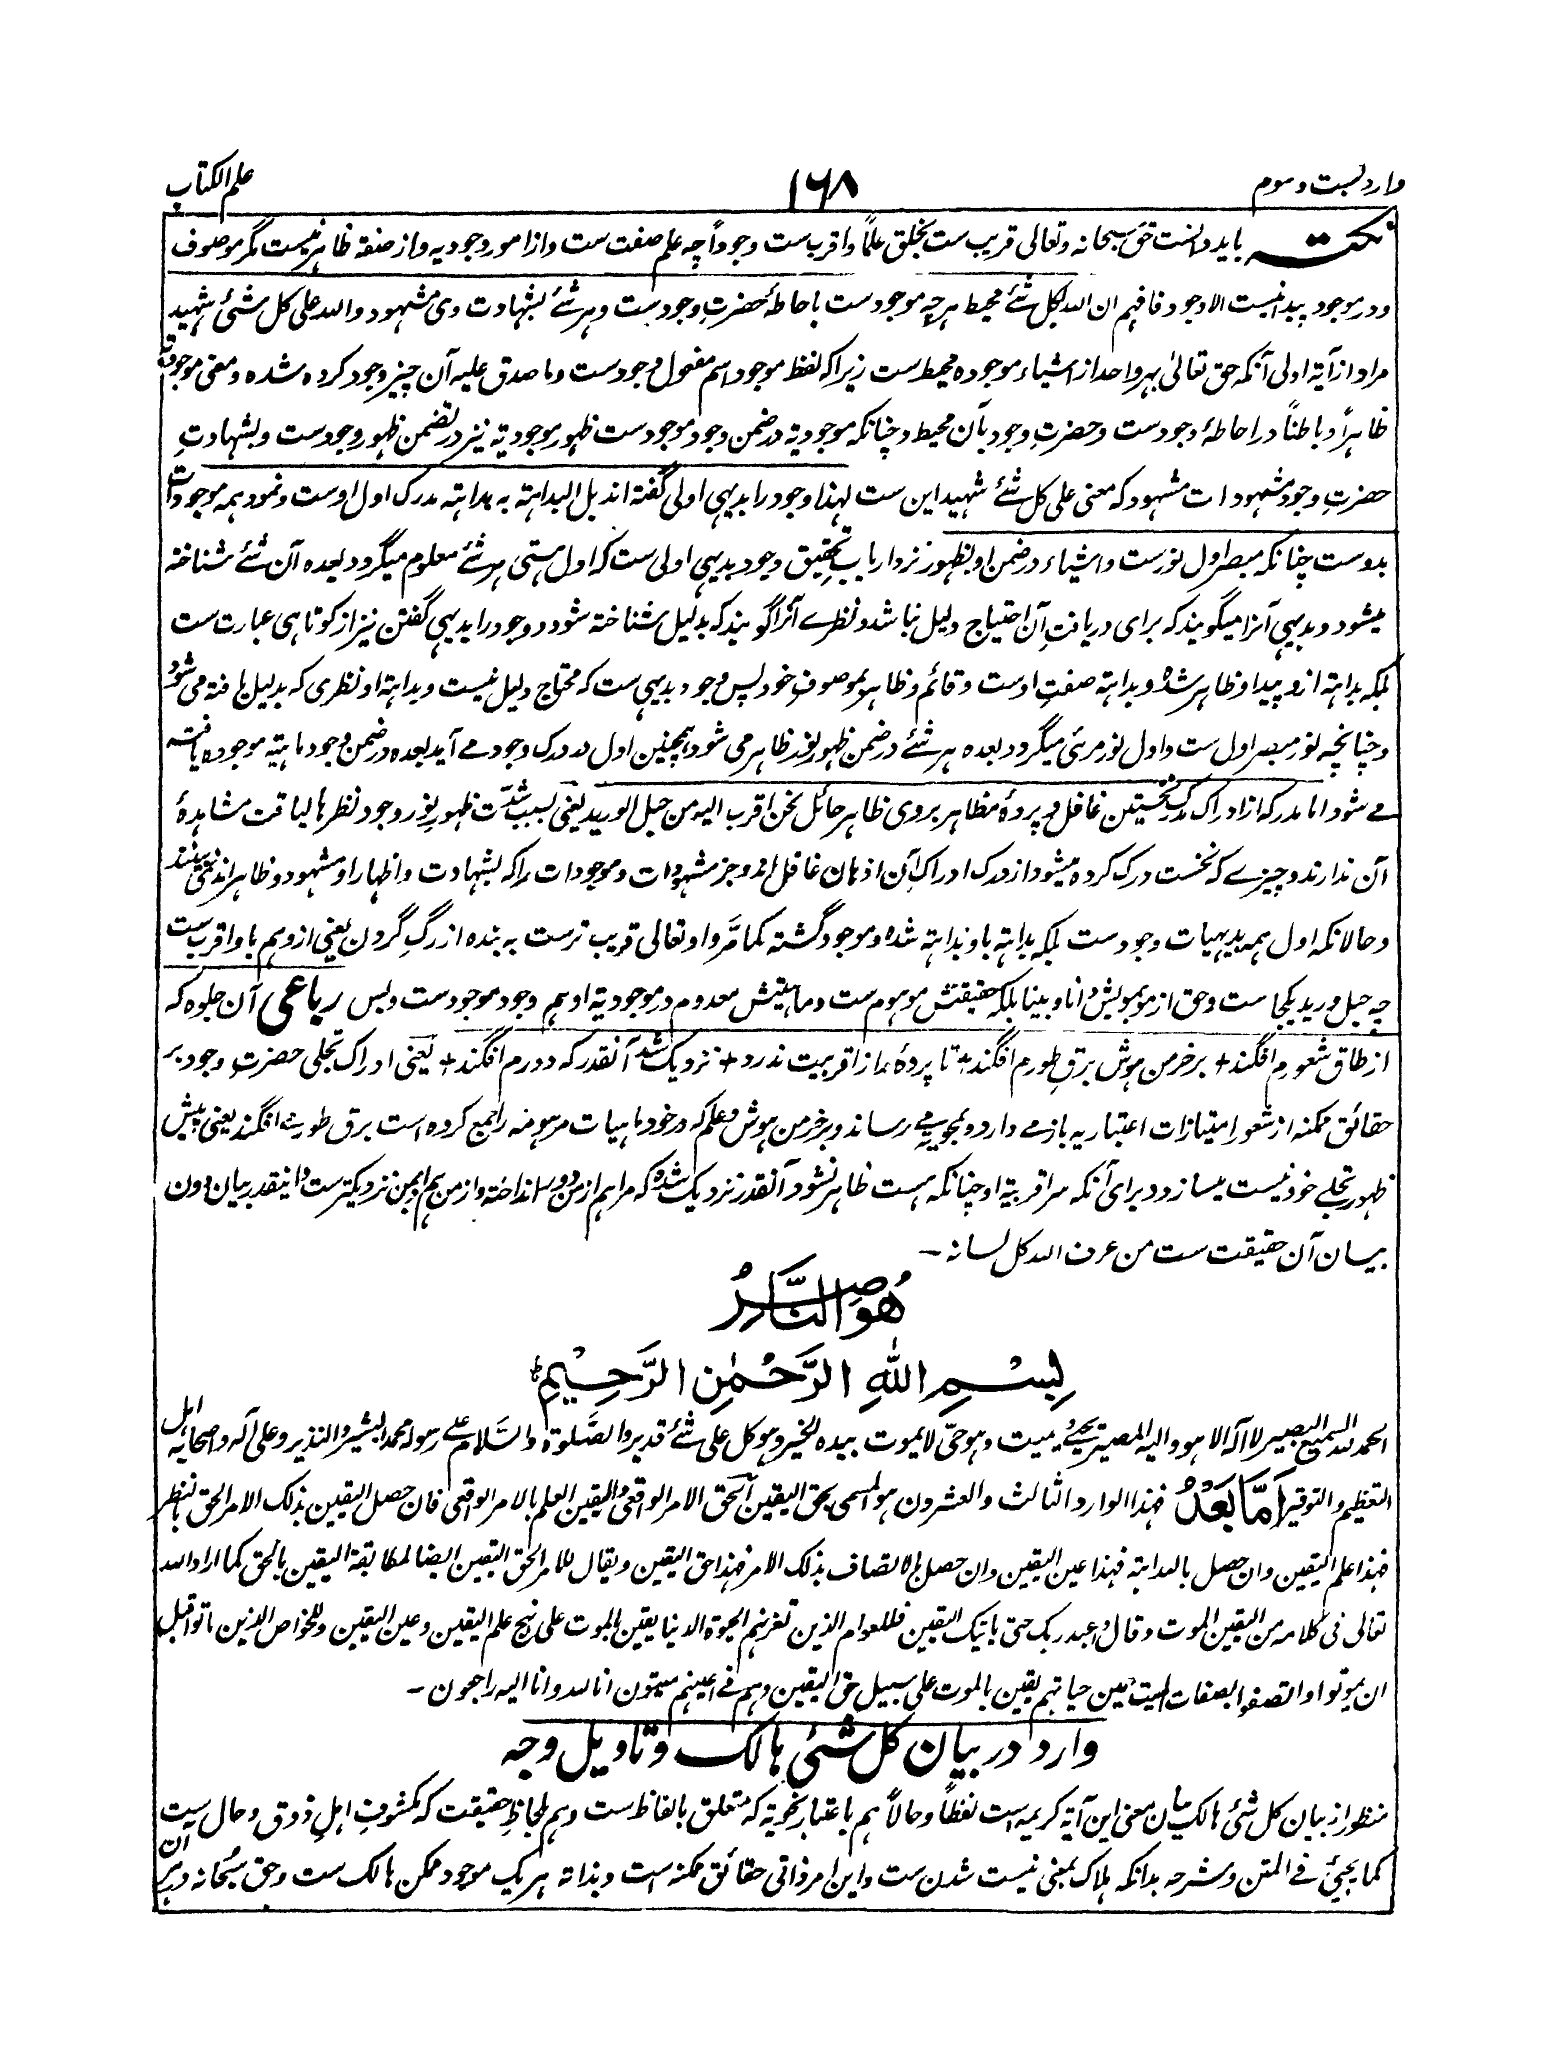 وارد بست و سوم
۱۶۸
علم الکتاب
نکتہ باید دانست حق سبحانہ و تعالی قریب ست بخلق علماً و اقرب ست وجوداً چہ علم صفت ست و از امور وجودیہ و از صفتہ ظاہر نیست مگر موصوف
و در موجود پیدا نیست الا وجود فافہم ان اللہ بکل شئے محیط ہرچہ موجود ست باحاطۂ حضرتِ وجود ست و ہر شئے بشہادت وی مشہود واللہ علی کل شئ شہید
مراد از آیۃ اولی آنکہ حق تعالیٰ بہر واحد از اشیاء موجودہ محیط ست زیرا کہ لفظ موجود اسم مفعول وجود ست و ما صدق علیہ آن چیز وجود کردہ شدہ و معنی موجودیۃ
ظاہراً و باطناً در احاطۂ وجود ست و حضرتِ وجود بآن محیط و چنانکہ موجودیۃ در ضمن وجود موجود ست ظہور موجودیۃ نیز در تضمن ظہور وجود ست و بشہادتِ
حضرتِ وجود مشہودات مشہود کہ معنی علی کل شئے شہید این ست لہذا وجود را بدیہی اولی گفتہ اند بل البداہتہ بہ بداہتہ مدرک اول اوست و نمود ہمہ موجودات
بدوست چنانکہ مبصر اول نورست و اشیاء در ضمن او بظہور نزد ارباب تحقیق وجود بدیہی اولی ست کہ اول ہستی ہر شئے معلوم میگردد بعدہ آن شئے شناختہ
میشود و بدیہی آنرا میگویند کہ برای دریافتِ آن احتیاج دلیل نباشد و نظرے آنرا گویند کہ بدلیل شناختہ شود و وجود را بدیہی گفتن نیز از کوتاہی عبارت ست
بلکہ بداہتہ ازو پیدا و ظاہر شدہ و بداہتہ صفتِ اوست و قائم و ظاہر بموصوفِ خود پس وجود بدیہی ست کہ محتاج دلیل نیست و بداہتہ او نظری کہ بدلیل یافتہ می شود
و چنانچہ نور مبصر اول ست و اول نور مرئی میگردد بعدہ ہر شئے در ضمن ظہور نور ظاہر می شود ہمچنین اول در درک وجود مے آید بعدہ در ضمن وجود ماہیتہ موجودہ یافتہ
مے شود اما مدرکہ از ادراک مدرک نخستین غافل و پردۂ مظاہر بروی ظاہر حائل نحن اقرب الیہ من حبل الورید یعنی بسبب شدّت ظہور نور وجود نظرہا لیاقت مشاہدۂ
آن ندارند و چیزے کہ نخست درک کردہ میشود از درک ادراک آن اذہان غافل اند و جز مشہودات و موجودات را کہ بشہادت و اظہار او مشہود و ظاہر اند نمی بینند
و حالانکہ اول ہمہ بدیہیات وجود ست بلکہ بداہتہ باو بداہتہ شدہ و موجود گشتہ کما مَرَّ و او تعالی قریب ترست بہ بندہ از رگِ گردن یعنی از وہم باو اقرب ست
چہ حبل ورید یکجا ست و حق از مو بمویش دانا و بینا بلکہ حقیقتش موہوم ست و ماہیتش معدوم و در موجودیۃ او ہم وجود موجود ست و بس رباعی آن جلوہ کہ
از طاق شعورم افگند + بر خرمن ہوش برقِ طورم افگند + تا پردۂ راز اقربیت ندرد + نزدیک شد آنقدر کہ دورم افگند + یعنی ادراک تجلی حضرتِ وجود بر
حقائق ممکنہ از شعورِ امتیازات اعتباریہ باز مے دارد و بمحویہ مے رساند و بر خرمن ہوش و علم کہ در خود ماہیات مرہومہ را جمع کردہ است برق طور مے افگند یعنی پیش
ظہور تجلے خود نیست میسازد و برای آنکہ سر اقربیۃ او چنانکہ ہست ظاہر نشود آنقدر نزدیک شدہ کہ مرا ہم از من دور انداختہ و از من ہم بمن نزدیکترست و اینقدر بیان دون
بیان آن حقیقت ست من عرف اللہ کل لسانہ -
ھُوَ النَّاصِرُ
بِسْمِ اللّٰہِ الرَّحْمٰنِ الرَّحِیْمِ
الحمد للہ السمیع البصیر لا الہ الا ہو والیہ المصیر یحیی و یمیت و ہو حیّ لا یموت بیدہ الخیر و ہو علی کل شئ قدیر والصَّلوٰۃ والسَّلام علے رسولہ محمد البشیر والنذیر و علی آلہ واصحابہ اہل
التعظیم والتوقیر اَمَّا بَعْدُ فہذا الوارد الثالث والعشرون ہو المسمی بحق الیقین الحق الامر الواقعی والیقین العلم بالامر الواقعی فان حصل الیقین بذلک الامر الحق بالنظر
فہذا علم الیقین وان حصل بالبداہتہ فہذا عین الیقین وان حصل الاتصاف بذلک الامر فہذا حق الیقین و یقال للامر الحق الیقین ایضا لمطابقۃ الیقین بالحق کما اراد اللہ
تعالی فی کلامہ من الیقین الموت وقال واعبد ربک حتی یاتیک الیقین فللعوام الذین تغرنہم الحیوۃ الدنیا یقین بالموت علی نہج علم الیقین و عین الیقین وللخواص الذین ماتوا قبل
ان یموتوا واتصفوا بصفات المیت حین حیاتہم یقین بالموت علی سبیل حق الیقین وہم فے اعینہم میتون انا للہ وانا الیہ راجعون -
وارد در بیان کل شئی ہالک و تاویل وجہ
منظور از بیان کل شئی ہالک بیان معنی این آیۃ کریمہ است لفظاً و حالاً ہم باعتبار نحویہ کہ متعلق بالفاظ ست و ہم بلحاظِ حقیقت کہ مکشوفِ اہلِ ذوق و حال ست
کما یجیئ فے المتن و شرحہ بدانکہ ہلاک بمعنی نیست شدن ست و این امر ذاتی حقائق ممکنہ است و بذاتہ ہر یک موجود ممکن ہالک ست و حق سبحانہ در این